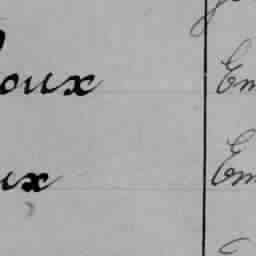 oux Em
ux Em